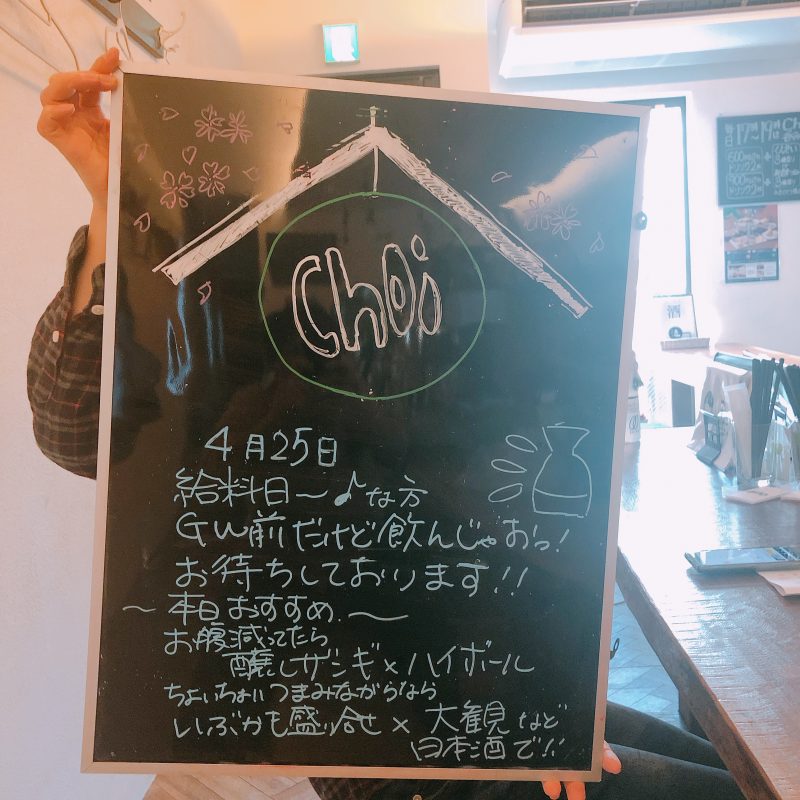 Choi
4月25日
給料日～♪な方
GW前だけど飲んじゃおっ!
お待ちしております!!
～本日おすすめ～
お腹減ってたら
醸しザンギ×ハイボール
ちょいちょいつまみながらなら
いぶかも盛り合せ×大観など
日本酒で!!
酒
17時～19時